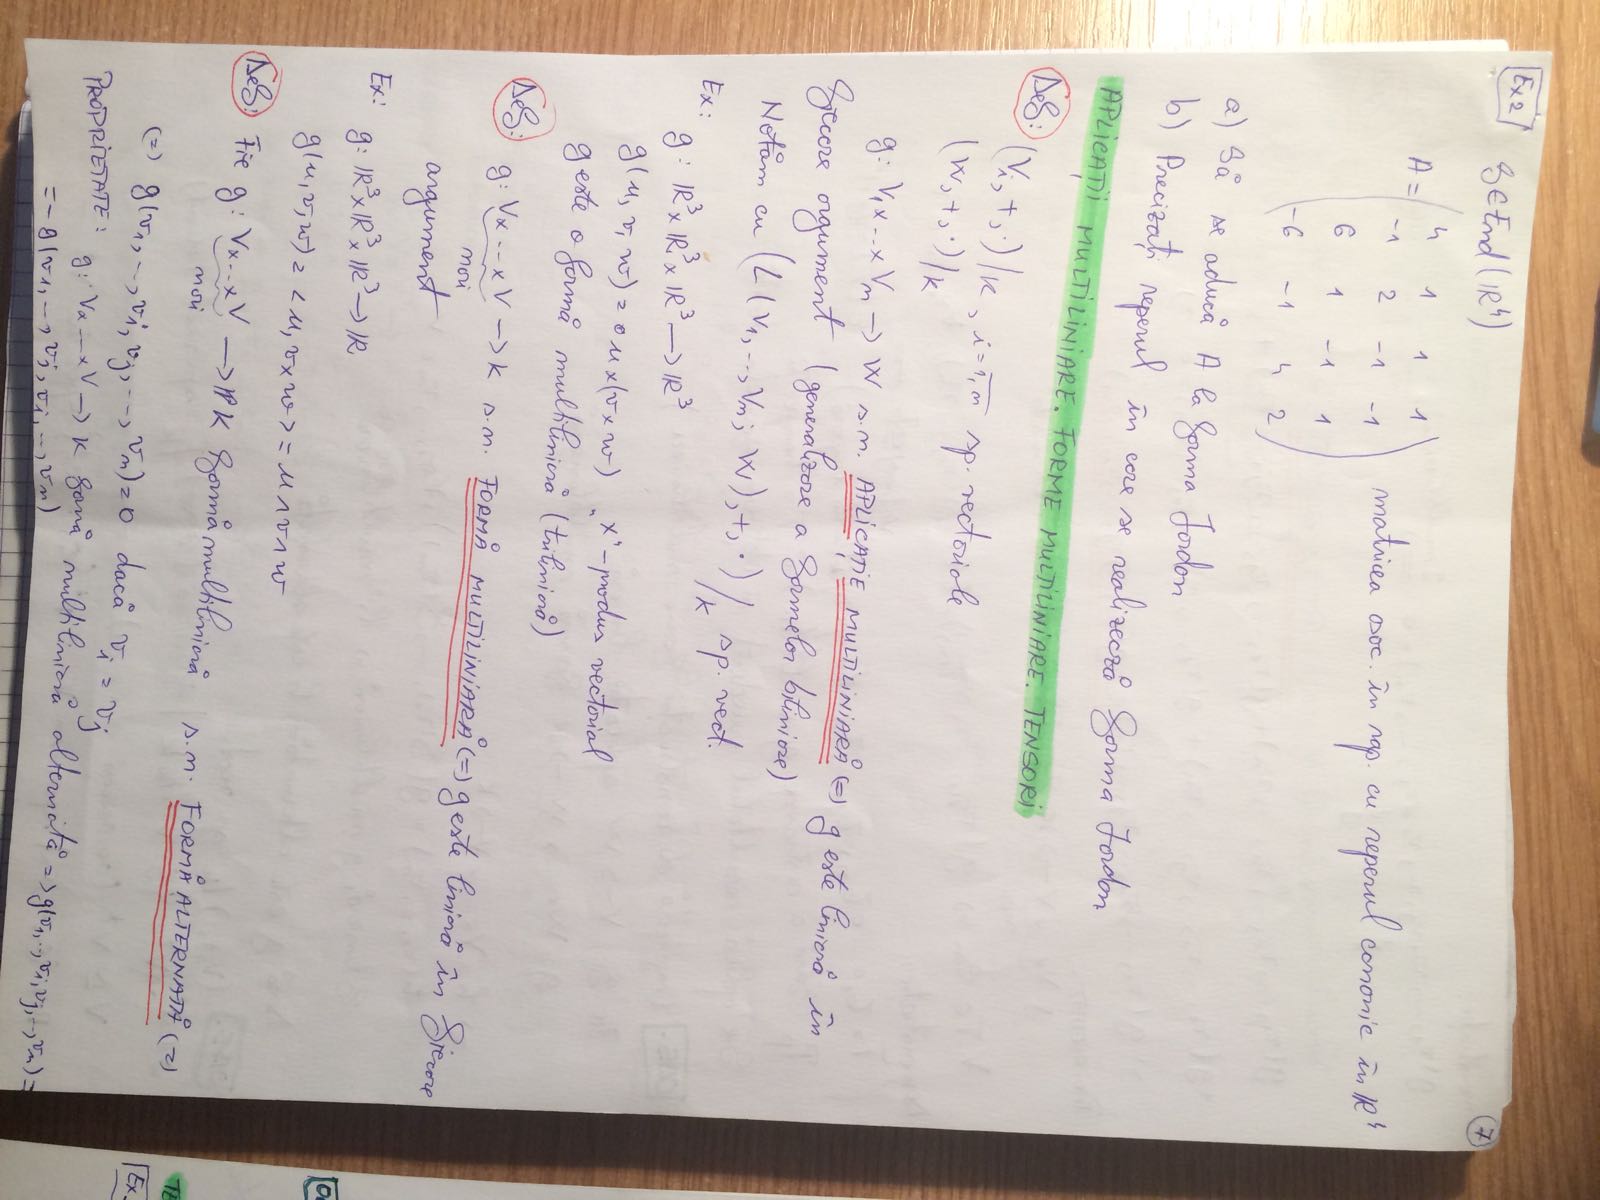 Ex 2 f ∈ End(ℝ⁴)
A = ( 4 1 1 1
-1 2 -1 -1
6 1 -1 1
-6 -1 4 2 ) matricea asoc. în rap. cu reperul canonic în ℝ⁴
a) Să se aducă A la forma Jordan
b) Precizați reperul în care se realizează forma Jordan
APLICAȚII MULTILINIARE. FORME MULTILINIARE. TENSORI
Def: (Vᵢ, +, ·)/K, i = 1,n sp. vectoriale
(W, +, ·)/K
g: V₁ x .. x Vₙ → W s.n. APLICAȚIE MULTILINIARĂ (=) g este liniară în
fiecare argument (generalizare a formelor biliniare)
Notăm cu (L(V₁, .., Vₙ; W), +, ·)/K sp. vect.
Ex: g: ℝ³ x ℝ³ x ℝ³ → ℝ³
g(u, v, w) = u x (v x w) „x" - produs vectorial
g este o formă multiliniară (triliniară)
Def: g: V x .. x V → K s.n. FORMĂ MULTILINIARĂ (=) g este liniară în fiecare
n ori
argument
Ex: g: ℝ³ x ℝ³ x ℝ³ → ℝ
g(u, v, w) = < u, v x w > = u ∧ v ∧ w
Def: Fie g: V x .. x V → K formă multiliniară s.n. FORMĂ ALTERNATĂ (=)
n ori
(=) g(v₁, .., vᵢ, vⱼ, .., vₙ) = 0 dacă vᵢ = vⱼ
PROPRIETATE: g: V x .. x V → K formă multiliniară alternată => g(v₁, .., vᵢ, vⱼ, .., vₙ) =
= - g(v₁, .., vⱼ, vᵢ, .., vₙ)
7
Ex.